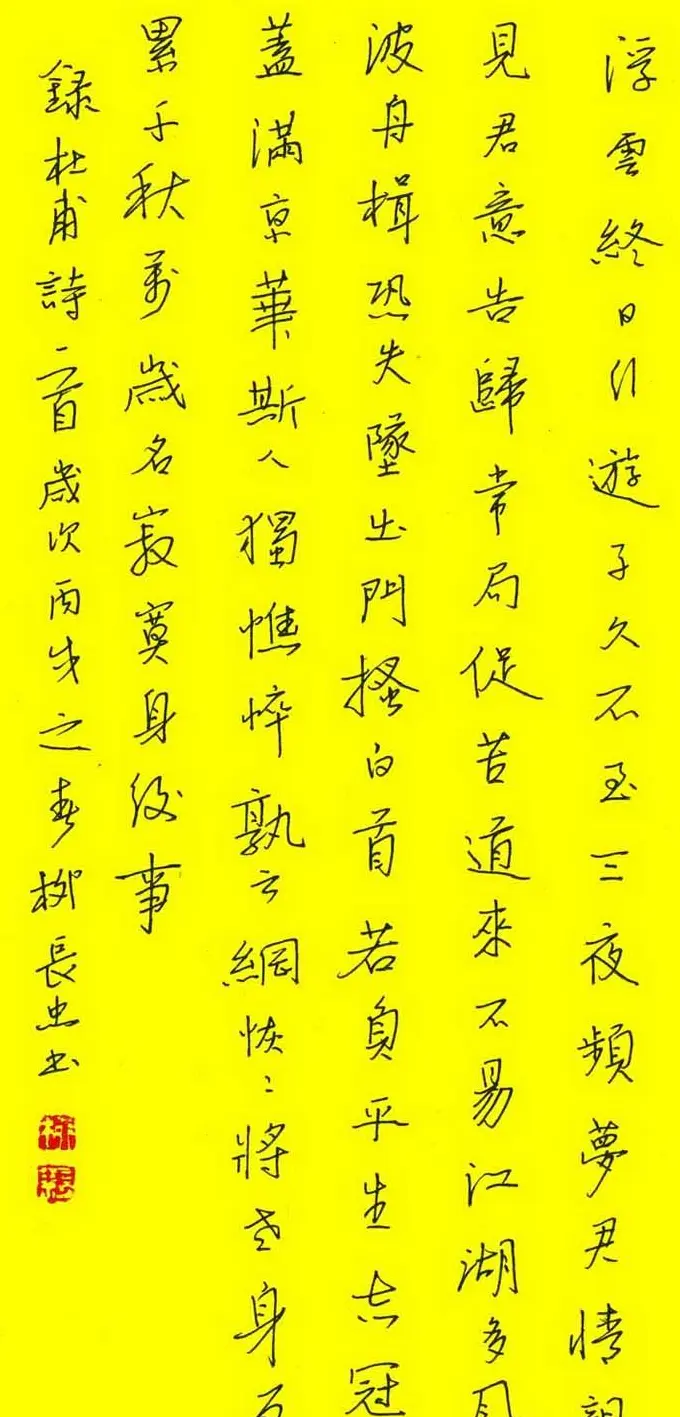 浮雲終日行遊子久不至三夜頻夢君情親
見君意告歸常局促苦道來不易江湖多風
波舟楫恐失墜出門搔白首若負平生志冠
蓋滿京華斯人獨憔悴孰云網恢〻將老身反
累千秋萬歲名寂寞身後事
錄杜甫詩二首歲次丙戌之春柳長忠書